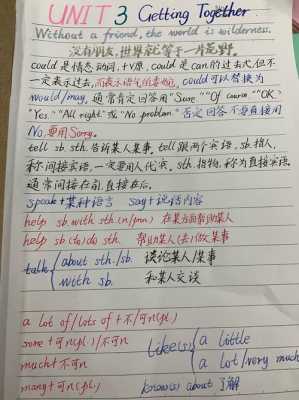 UNIT 3 Getting Together
Without a friend, the world is wilderness.
没有朋友,世界就等于一片荒野。
could是情态动词,+v原,could是can的过去式但不
一定表示过去,而表示语气的委婉,could可以替换为
would/may,通常肯定回答用"Sure""Of course""OK"
"Yes""All right"或"No problem"否定回答不要直接用
No,要用Sorry。
tell sb. sth.告诉某人某事,tell跟两个宾语,sb.指人,
称间接宾语,一定要用人代宾。sth.指物,称为直接宾语。
通常间接在前,直接在后。
speak+某种语言 say+说话内容
help sb. with sth.(n/prn) 在某方面帮助某人
help sb (to) do sth. 帮助某人(去)做某事
talk about sth./sb. 谈论某人/某事
with sb. 和某人交谈
a lot of/lots of+不/可n(pl)
some+可n(pl)/不可n
much+不可n
many+可n(pl)
like(s) a little
a lot/very much
know(s) about 了解